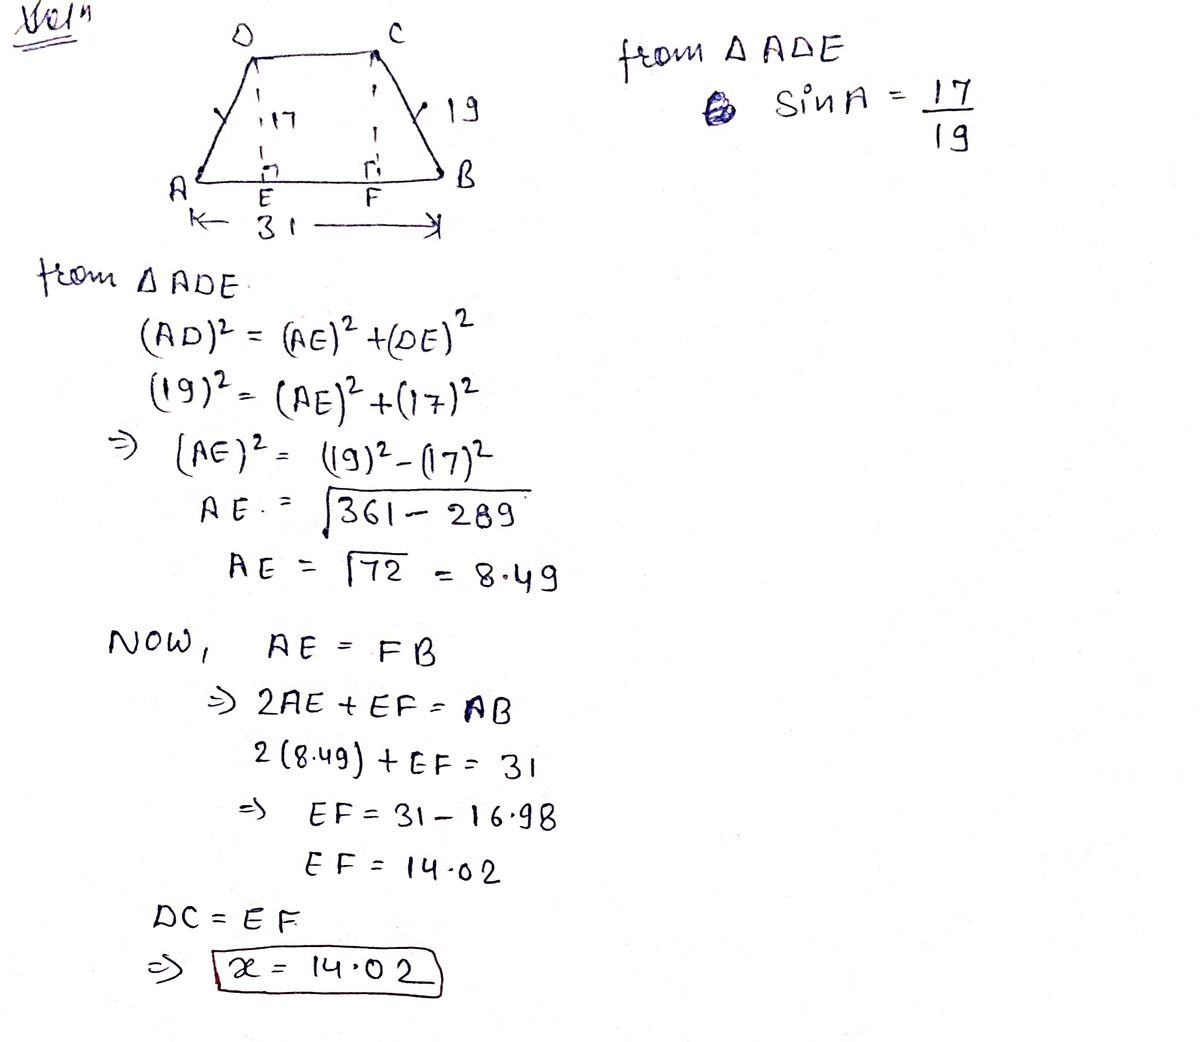 Soln
D C
17 19
A E F B
31
from Δ ADE
(AD)² = (AE)² + (DE)²
(19)² = (AE)² + (17)²
⇒ (AE)² = (19)² - (17)²
AE = √361 - 289
AE = √72 = 8.49
NOW, AE = FB
⇒ 2AE + EF = AB
2(8.49) + EF = 31
⇒ EF = 31 - 16.98
EF = 14.02
DC = EF
⇒ x = 14.02
from Δ ADE
Sin A = 17/19